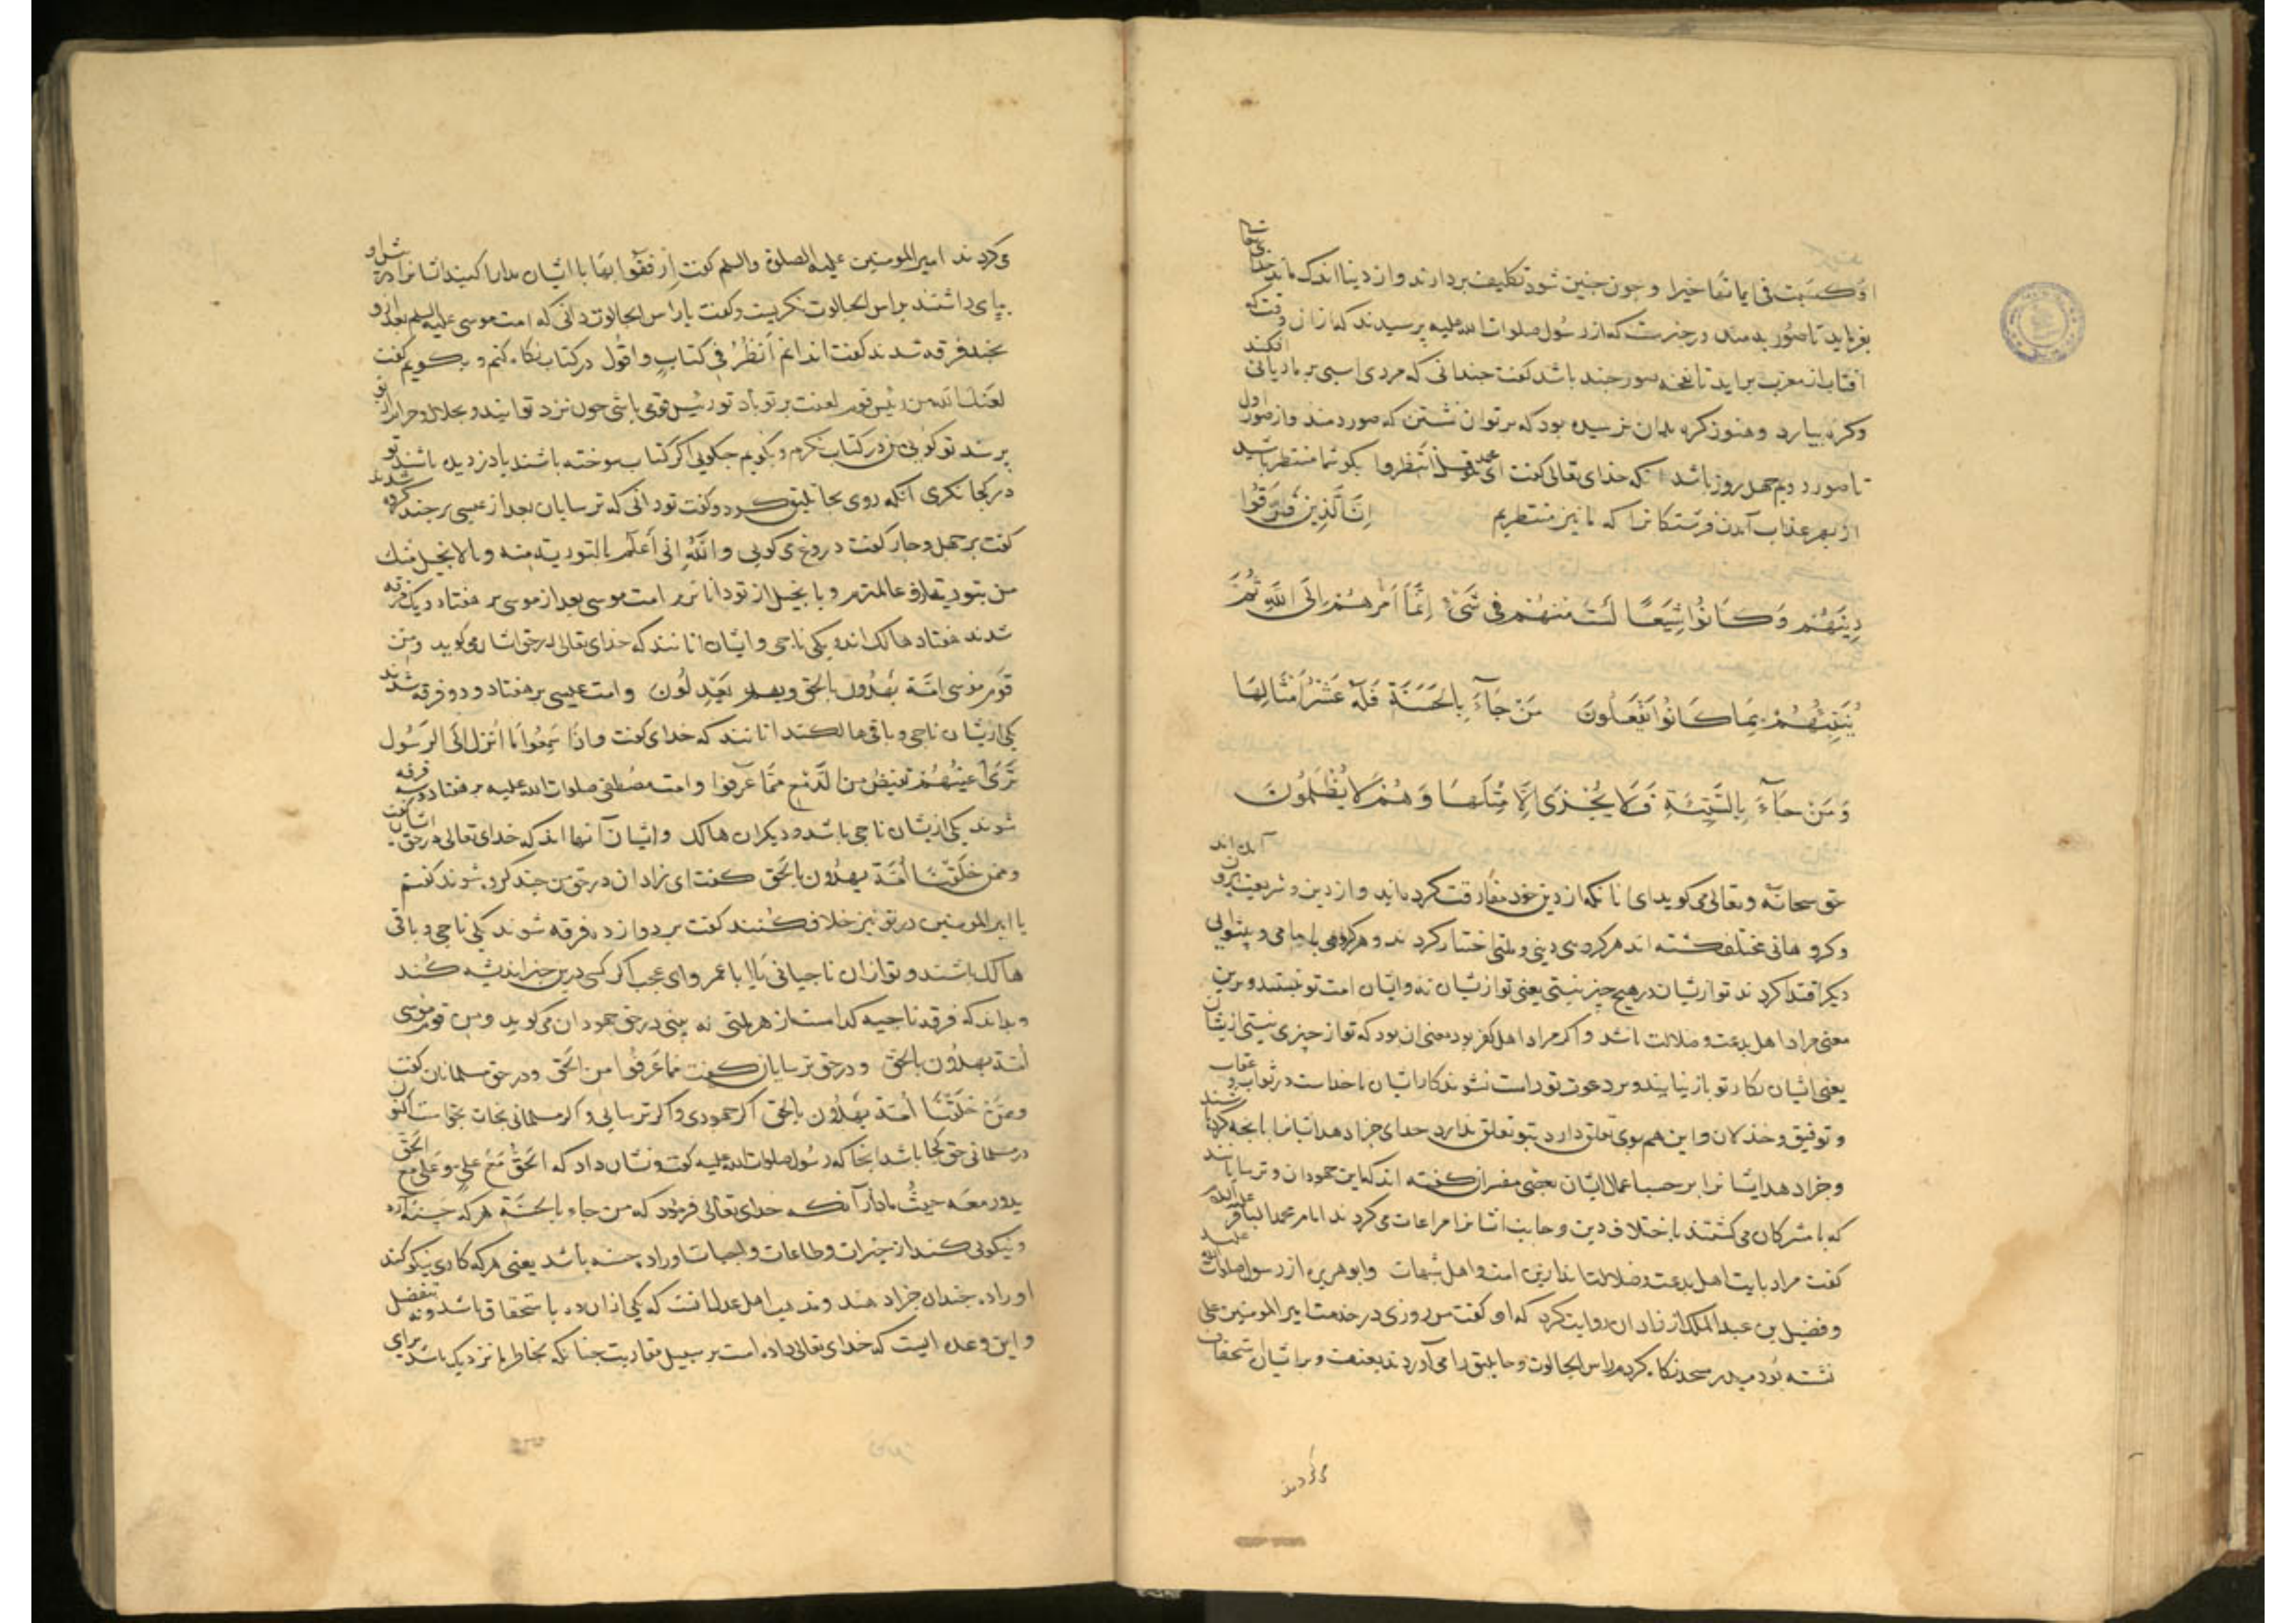 او کسبت فی ایمانها خیرا و چون چنین شود تکلیف بردارند و از دنیا اندک ماند خدای تعالی
بفرماید تا صور بدمند و در خبرست که از رسول صلوات الله علیه پرسیدند که از آن وقت که
آفتاب از مغرب براید تا نفخه صور چند باشد گفت چندانی که مردی اسبی بر مادیانی افکند
و کره بیارد و هنوز کره بدان نرسیده بود که برتوان نشستن که صور دمند و از صور اول
تا صور دویم چهل روز باشد آنکه خدای تعالی گفت ای محمد قل انتظروا بگو شما منتظر باشید
از بهر عذاب آمدن فرشتکانرا که ما نیز منتظریم اِنَّ الَّذِینَ فَرَّقُوا
دِینَهُمْ وَکَانُوا شِیَعًا لَسْتَ مِنْهُمْ فِی شَیْءٍ اِنَّمَا اَمْرُهُمْ اِلَی اللّٰهِ ثُمَّ
یُنَبِّئُهُمْ بِمَا کَانُوا یَفْعَلُونَ مَنْ جَآءَ بِالْحَسَنَةِ فَلَهُ عَشْرُ اَمْثَالِهَا
وَ مَنْ جَآءَ بِالسَّیِّئَةِ فَلَا یُجْزَی اِلَّا مِثْلَهَا وَ هُمْ لَا یُظْلَمُونَ
حق سبحانه و تعالی می کوید ای انانکه از دین خود مفارقت کرده اند و از دین و شریعت بیرون آمده اند
و کروهانی مختلف کشته اند هر کروهی دینی و ملتی اختیار کردند و هر کروهی بامامی و پیشوایی
دیکر اقتدا کردند تو ازیشان در هیچ چیز نیستی یعنی تو ازیشان نه و ایشان امت تو نیستند و برین
معنی مراد اهل بدعت و ضلالت باشد و اکر مراد اهل کفر بود معنی ان بود که تو از چیزی نیستی ازیشان
یعنی ایشان بکار تو باز نیایند و بر دعوت تو راست نشوند کار ایشان با خداست در ثواب و عقاب
و توفیق و خذلان و این هم بوی تعلق دارد بتو تعلق ندارد خدای جزا دهد ایشانرا بآنچه کرده باشند
و جزا دهد ایشانرا بر حسب اعمال ایشان بعضی مفسران گفته اند که این جهودان و ترسایانند
که با مشرکان می کشتند باختلاف دین و جانب ایشانرا مراعات می کردند امام محمد الباقر علیه السلام
گفت مراد بایت اهل بدعت و ضلالت اند ازین امت و اهل شبهات و ابو هریره از رسول صلوات الله علیه
و فضیل بن عبد الملک از زادان روایت کرد که او گفت من روزی در خدمت امیر المومنین علی
نشسته بودم در مسجد نکاه کردم راس الجالوت و جاثلیق را می آوردند بعنف و بر ایشان استخفاف
می کردند
می کردند امیر المومنین علیه الصلوة والسلم گفت اِرفَقوا بهما با ایشان مدارا کنید ایشانرا در پیش او
بپای داشتند براس الجالوت نکریست و گفت یا راس الجالوت دانی که امت موسی علیه السلم بعد از و
بچند فرقه شدند گفت اندانم اَنظُرُ فی کتابٍ و اَقُول در کتاب نکاه کنم و بکویم گفت
لعنک الله من رئیس قوم لعنت بر تو باد تو رئیس قومی باشی چون نزد تو آیند و بحلال و حرام از تو
پرسند تو کویی من در کتاب نکرم و بکویم چکویی اکر کتاب سوخته باشند یا دزدیده باشند تو
در کجا نکری آنکه روی بجاثلیق کرد و گفت تو دانی که ترسایان بعد از عیسی بر چند کروه شدند
گفت بر چهل و چار گفت دروغ می کویی و اللهِ انی اَعلَمُ بالتوریه منه و بالانجیل منک
من بتوریة از او عالمترم و بانجیل از تو داناترم امت موسی بعد از موسی بر هفتاد و یک فرقه
شدند هفتاد هالک اند و یکی ناجی و ایشان انانند که خدای تعالی در حق ایشان می کوید و مِن
قومِ موسی امّة یَهْدُونَ بالحق و به یَعْدِلُونَ و امت عیسی بر هفتاد و دو فرقه شدند
یکی ازیشان ناجی و باقی هالکند انانند که خدای گفت و اِذَا سَمِعُوا مَا اُنْزِلَ اِلَی الرَّسُول
تَرَی اَعْیُنَهُمْ تَفِیضُ مِنَ الدَّمْعِ مِمَّا عَرَفُوا و امت مصطفی صلوات الله علیه بر هفتاد و سه فرقه
شوند یکی ازیشان ناجی باشد و دیکران هالک و ایشان آنها اند که خدای تعالی در حق ایشان گفت
و ممن خَلَقْنَا اُمَّة یهدُون بالحَق گفت ای زادان در حق من چند کروه شوند گفتم
یا امیر المومنین در تو نیز خلاف کنند گفت بر دوازده فرقه شوند یکی ناجی و باقی
هالک باشند و تو از ان ناجیانی یا ابا عمر و ای عجب اکر کسی درین خبر اندیشه کند
و بداند که فرقه ناجیه کدامست از هر ملتی نه بینی در حق جهودان می کوید و من قوم موسی
اُمّة یهدُون بالحَق و در حق ترسایان گفت مما عَرَفُوا من الحَق و در حق مسلمانان گفت
و مِمَّنْ خَلَقْنَا اُمَّة یَهْدُون بالحَق اکر جهودی و اکر ترسایی و اکر مسلمانی نجات بحق است اکنون
در مسلمانی حق کجا باشد آنجا که رسول صلوات الله علیه گفت و نشان داد که الحَقُّ مَعَ علیٍ و علی مع الحَقِّ
یدور معه حیثُ مادار آنکه خدای تعالی فرمود که من جاء بالحَسَنَةِ هر که حسنه آرد
و نیکویی کند از خیرات و طاعات و واجبات او را ده حسنه باشد یعنی هر که کاری نیکو کند
او را ده چندان جزا دهند و مذهب اهل عدل آنست که یکی ازان ده باستحقاق باشد و نه بتفضل
و این وعده ایست که خدای تعالی داده است بر سبیل مقاربت چنانکه بخاطر ما نزدیک باشد برای